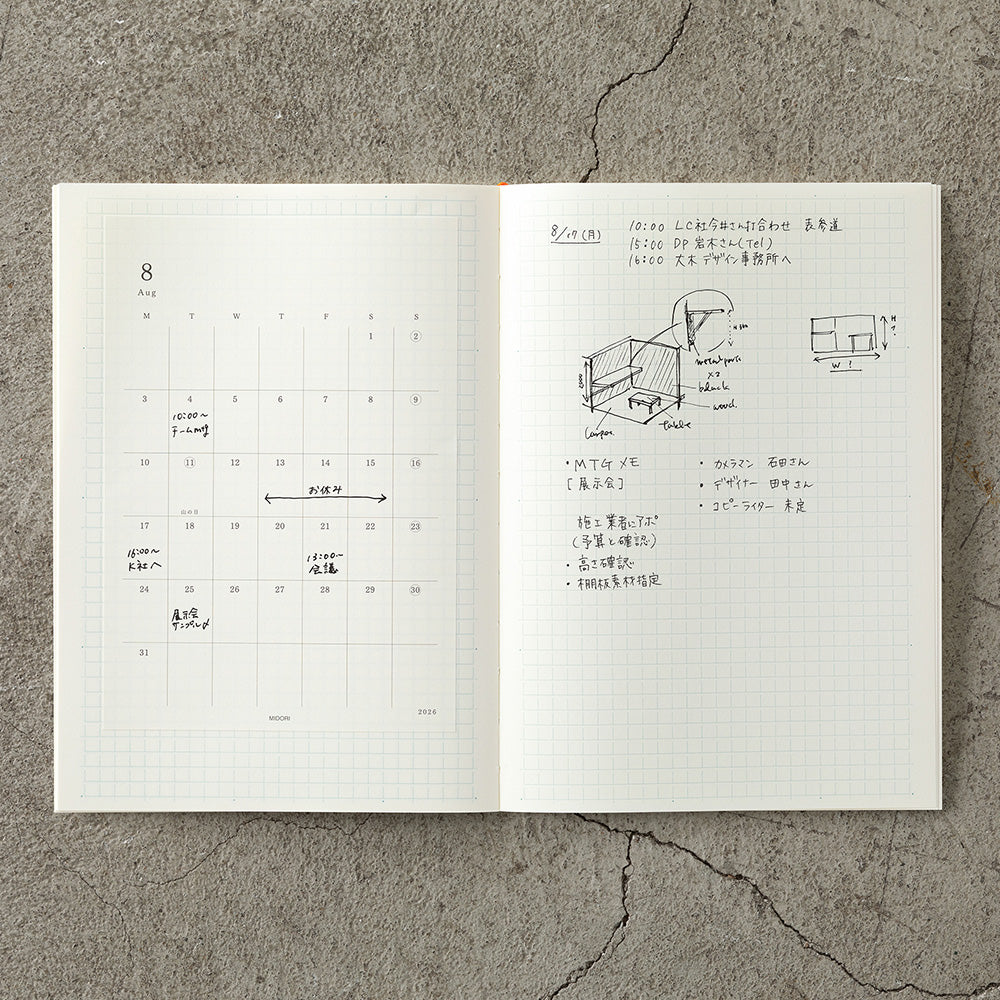 8
Aug
M T W T F S S
1 2
3 4 5 6 7 8 9
10:00〜
チームmtg
10 11 12 13 14 15 16
お休み
山の日
17 18 19 20 21 22 23
16:00〜
K社へ
13:00〜
会議
24 25 26 27 28 29 30
展示会
サンプル〆
31
2026
MIDORI
8/17(月)
10:00 LC社今井さん打合わせ 表参道
15:00 DP 岩木さん(Tel)
16:00 大木デザイン事務所へ
H
metal parts
×2
black
wood.
table
H
?
W !
・MTGメモ
[展示会]
施工業者にアポ
(予算と確認)
・高さ確認
・棚板素材指定
・カメラマン 石田さん
・デザイナー 田中さん
・コピーライター 未定